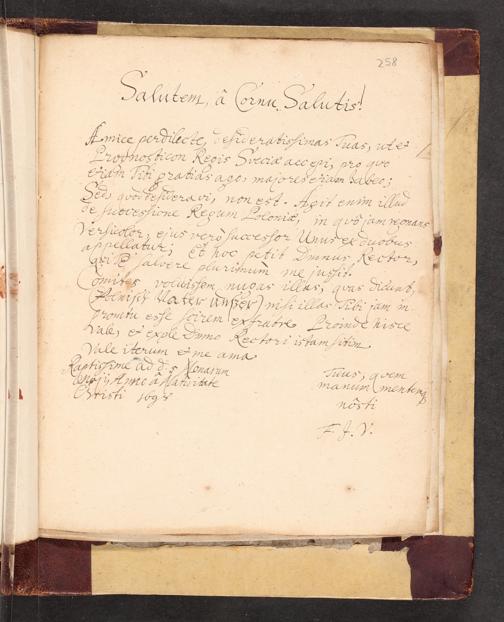 258
Salutem, â Cornu Salutis!
Amice perdilecte, desideratissimas Tuas, ut et
Prognosticon Regis Sveciæ accepi, pro quo
etiam Tibi gratias ago, majores etiam habeo;
Sed, quod desideravi, non est. Agit enim illud
de successione Regum Poloniæ, in quo jam regnans
Versicolor, ejus verò successor Unus ex duobus
appellatur; et hoc petit Dmnus Rector,
qui Te salvere plurimum me jussit
Comites voluissem nugas illas, quas dicunt,
Vater Unser) nisi illas Tibi jam in
promtu esse scirem ex fratre Proinde hisce
Vale, et exple Dmno Rectori istam sitim
Vale iterum et me ama
Raptissime ad d. 5 Nonarum
Anno â Nativitate
Christi 1698
Tuus, quem
manum mentemq
nôsti
F. J. V.